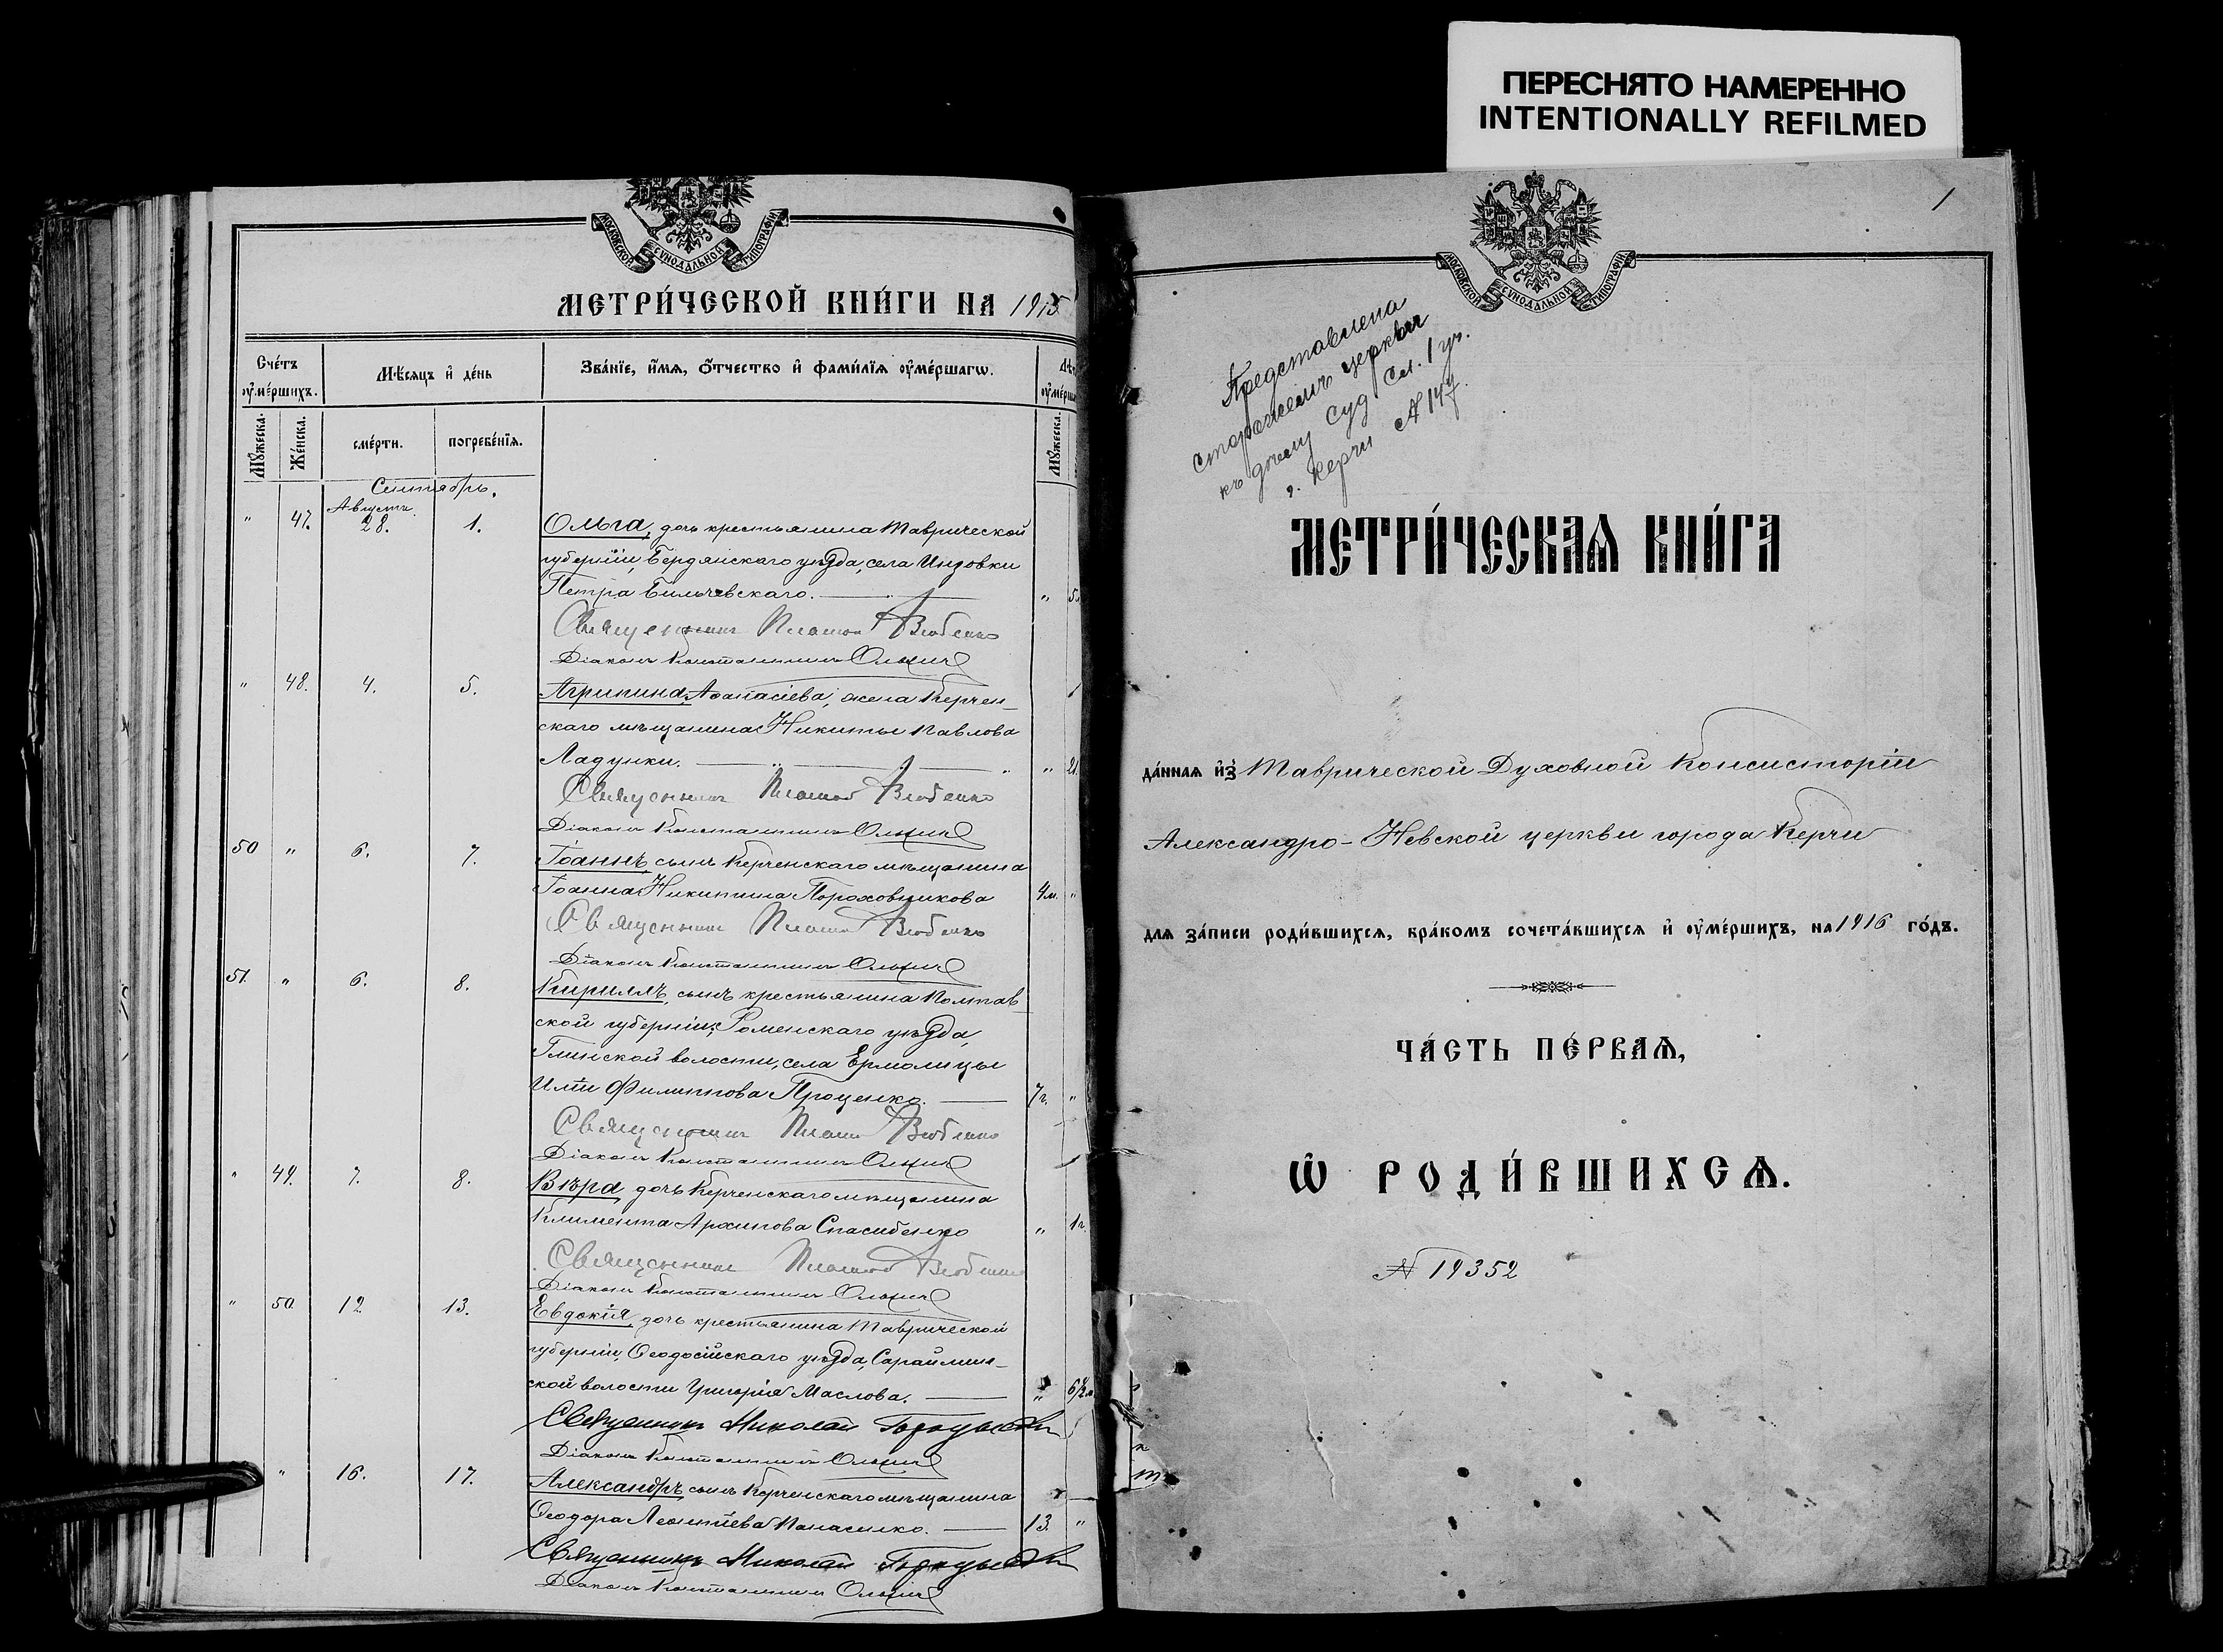 ПЕРЕСНЯТО НАМЕРЕННО
INTENTIONALLY REFILMED
МОСКОВСКОЙ СѴНОДАЛЬНОЙ ТИПОГРАФІИ
МЕТРИ́ЧЕСКОЙ КНИ́ГИ НА 1915
Сче́тъ ᲂу҆ме́ршихъ.
Мѣ́сяцъ и҆ де́нь
Зва́нїе, и҆́мѧ, ѻ҆́тчество и҆ фами́лїѧ ᲂу҆ме́ршагѡ.
Лѣ
ᲂу҆ме́рш
Мꙋ́жеска.
Же́нска.
сме́рти.
погребе́нїѧ.
Мꙋ́жеска.
Сентябрь.
Августа.
" 47. 28. 1. Ольга, дочь крестьянина Таврической
губерніи, Бердянскаго уѣзда, села Инзовки
Петра Бильчевскаго. " 5
Священникъ Платонъ
Діаконъ Константинъ
" 48. 4. 5. Агрипина Аѳанасіева, жена Керчен-
скаго мѣщанина Никиты Павлова
Ладунки. " " 21.
Священникъ Платонъ
Діаконъ Константинъ
50 " 6. 7. Іоаннъ, сынъ Керченскаго мѣщанина
Іоанна Никитина Пороховникова 4м. "
Священникъ Платонъ
Діаконъ Константинъ
51. " 6. 8. Кириллъ, сынъ крестьянина Полтав-
ской губерніи, Роменскаго уѣзда,
Глинской волости, села Ермолицы
Иліи Филиппова Проценко. 7г. "
Священникъ Платонъ
Діаконъ Константинъ
" 49. 7. 8. Вѣра, дочь Керченскаго мѣщанина
Климента Архипова Спасибенко " 1г.
Священникъ Платонъ
Діаконъ Константинъ
" 50. 12. 13. Евдокія, дочь крестьянина Таврической
губерніи, Ѳеодосійскаго уѣзда, Сараймин-
ской волости Григорія Маслова. "
Священникъ Николай
Діаконъ Константинъ
" 16. 17. Александръ, сынъ Керченскаго мѣщанина
Ѳеодора Леонтіева Панасенко. 13. "
Священникъ Николай
Діаконъ Константинъ
1
МОСКОВСКОЙ СѴНОДАЛЬНОЙ ТИПОГРАФІИ
Представлена
сторожемъ церкви
къ дочему Суд Сл. 1 уч.
г. Керчи
МЕТРИ́ЧЕСКАѦ КНИ́ГА
да́ннаѧ и҆з̾ Таврической Духовной Консисторіи
Александро-Невской церкви города Керчи
для за́писи роди́вшихсѧ, бра́комъ сочета́вшихсѧ и҆ ᲂу҆ме́ршихъ, на 1916 го́дъ.
ЧА́СТЬ ПЕ́РВАѦ,
Ѡ҆ РОДИ́ВШИХСѦ.
№ 19352